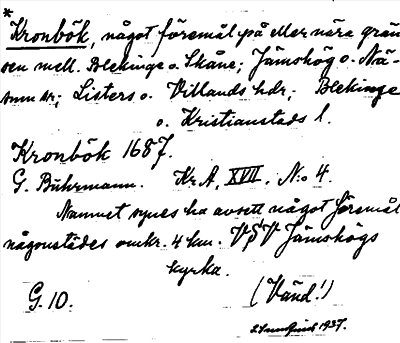 *
Kronbök, något föremål på eller nära grän
sen mell. Blekinge o. Skåne; Jämshög o. Nä-
sum sr; Listers o. Villands hdr; Blekinge
o. Kristianstads l.
Kronbök 1687.
G. Buhrmann. Kr.A. XVII. N:o 4.
Namnet synes ha avsett något föremål
någonstädes omkr. 4 km. VSV Jämshögs
kyrka.
G. 10. (Vänd!)
1937.